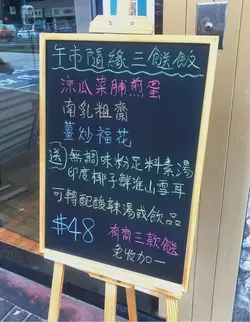 午市隨緣三餸飯
涼瓜菜脯煎蛋
南乳粗齋
薑炒福花
送 無調味粉足料素湯
印度椰子鮮淮山雪耳
可轉配酸辣湯或飲品
$48 有齊三款餸
免收加一